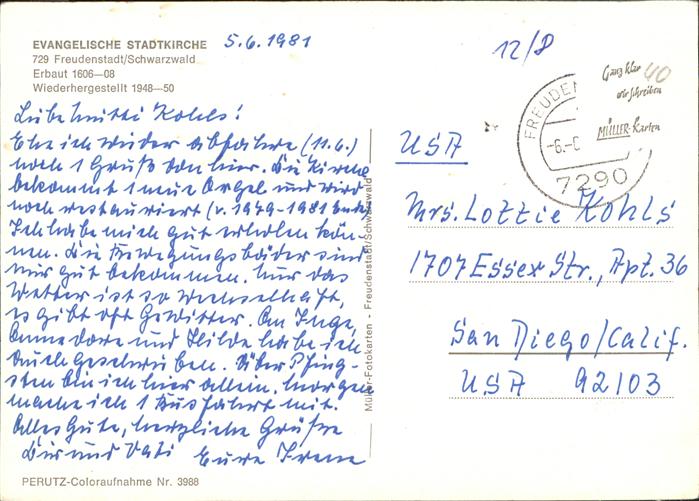 EVANGELISCHE STADTKIRCHE
729 Freudenstadt/Schwarzwald
Erbaut 1606—08
Wiederhergestellt 1948—50
5.6.1981
Liebe Mutti Kohls!
Ehe ich wieder abfahre (11.6.)
noch 1 Gruß von hier. Die Kirche
bekommt 1 neue Orgel und wird
noch restauriert (v. 1979-1981
Ich habe mich gut erholen kön-
nen. Die Bewegungsbäder sind
mir gut bekommen. Nur das
Wetter ist so wechselhaft,
es gibt oft Gewitter. An Inge,
Annedore und Hilde habe ich
auch geschrieben. Über Pfing-
sten bin ich hier allein. Morgen
mache ich 1 Ausfahrt mit.
Alles Gute, herzliche Grüße
Dir und Vati Eure Irene
PERUTZ-Coloraufnahme Nr. 3988
Müller-Fotokarten - Freudenstadt/Schwarzwald
12/8
40
Ganz klar
wir schreiben
MÜLLER-Karten
FREUDEN
-6.-6
7290
USA
Mrs. Lottie Kohls
1707 Essex Str., Apt. 36
San Diego/Calif.
USA 92103